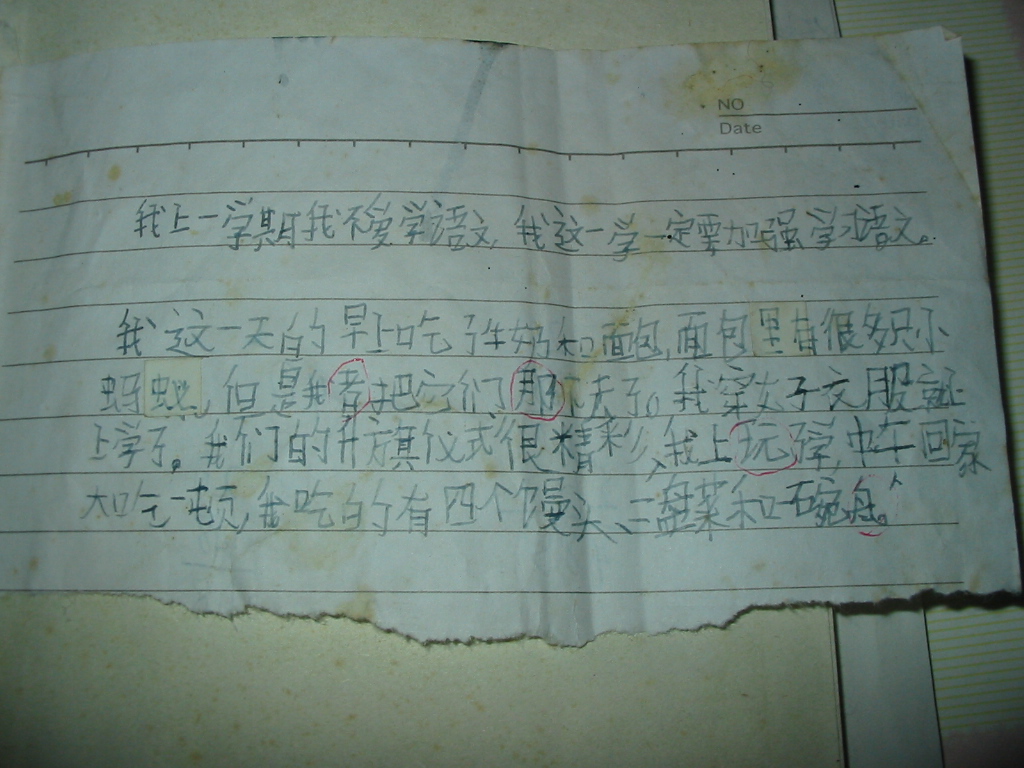 NO
Date
我上一学期我不爱学语文,我这一学一定要加强学习语文。
我这一天的早上吃了牛奶和面包,面包里有很多只小
蚂蚁,但是我者把它们那不去了。我穿好衣服就
上学了。我们的升旗仪式很精彩,我上玩学,中午回家
大吃一顿,我吃的有四个馒头、三盘菜和一碗